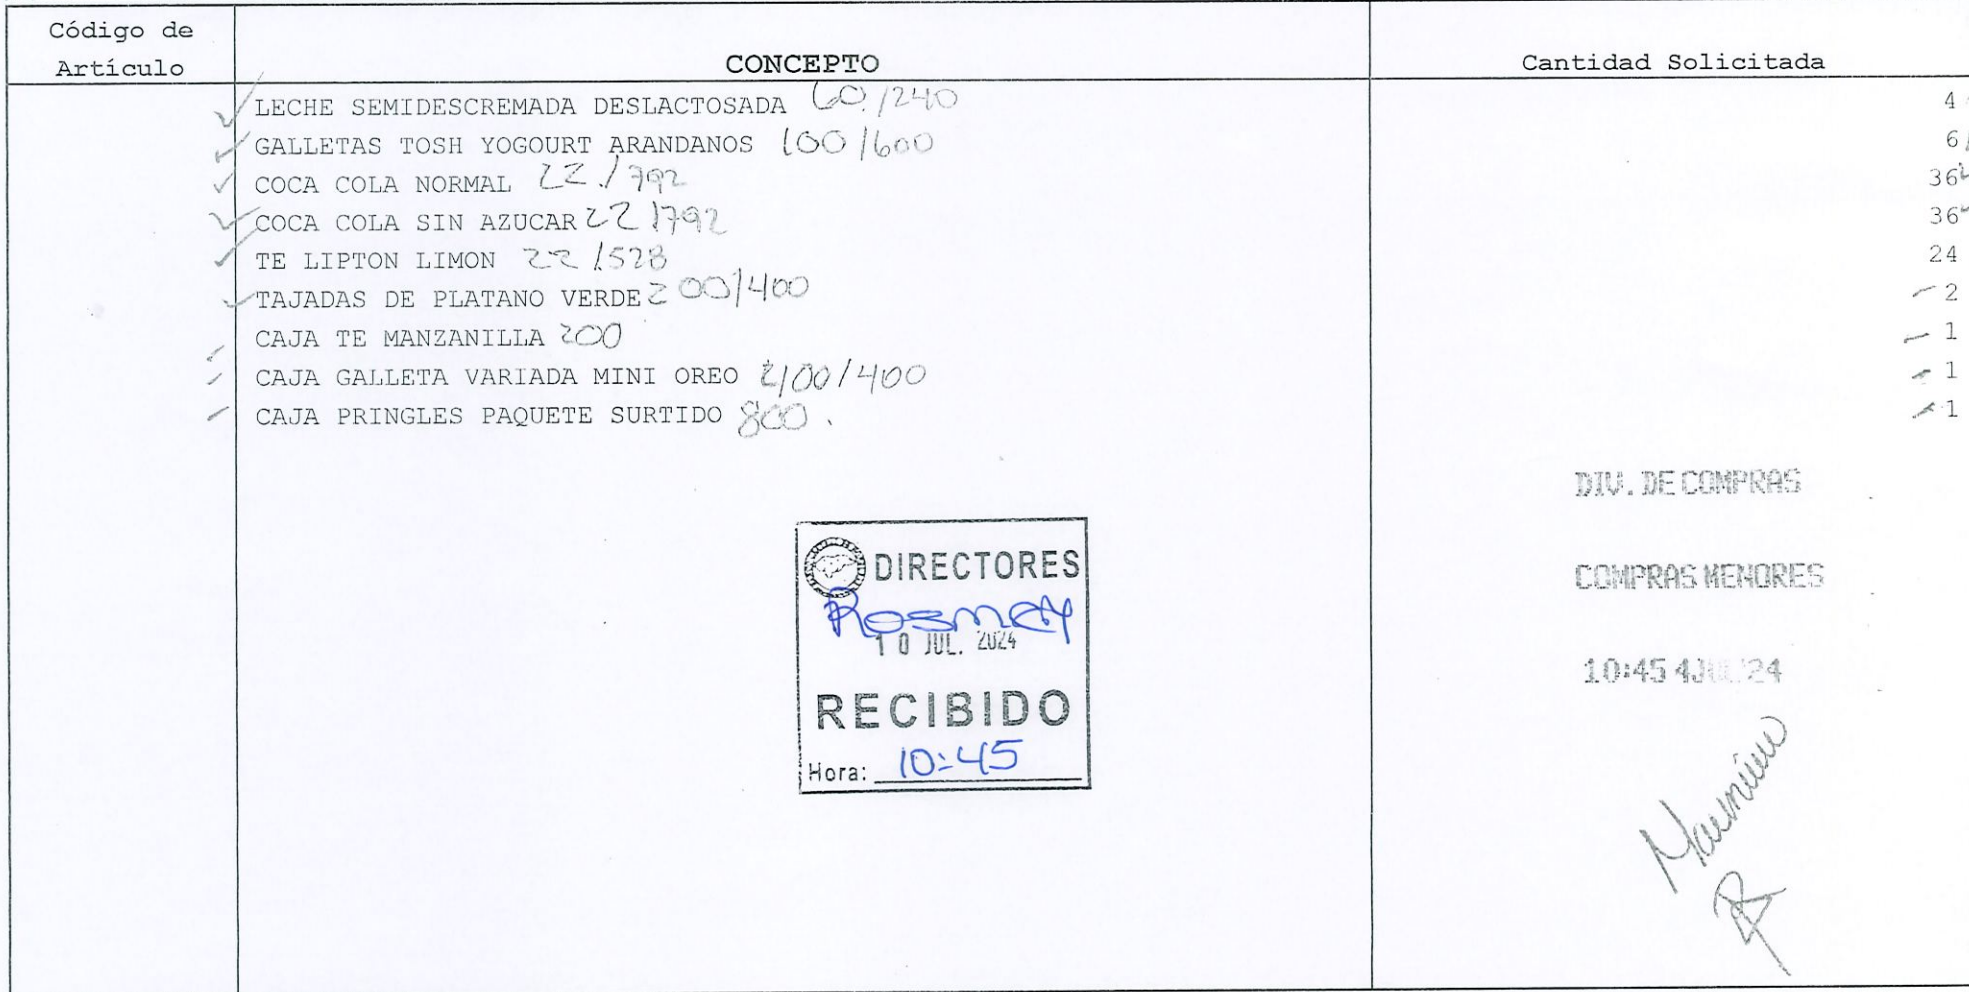 Código de Artículo CONCEPTO Cantidad Solicitada
LECHE SEMIDESCREMADA DESLACTOSADA 60./240 4
GALLETAS TOSH YOGOURT ARANDANOS 100/600 6
COCA COLA NORMAL 22./792 36
COCA COLA SIN AZUCAR 22/792 36
TE LIPTON LIMON 22/528 24
TAJADAS DE PLATANO VERDE 200/400 2
CAJA TE MANZANILLA 200 1
CAJA GALLETA VARIADA MINI OREO 400/400 1
CAJA PRINGLES PAQUETE SURTIDO 800. 1
DIV. DE COMPRAS
COMPRAS MENORES
10:45 4JUL'24
DIRECTORES
Rosmery
10 JUL. 2024
RECIBIDO
Hora: 10:45